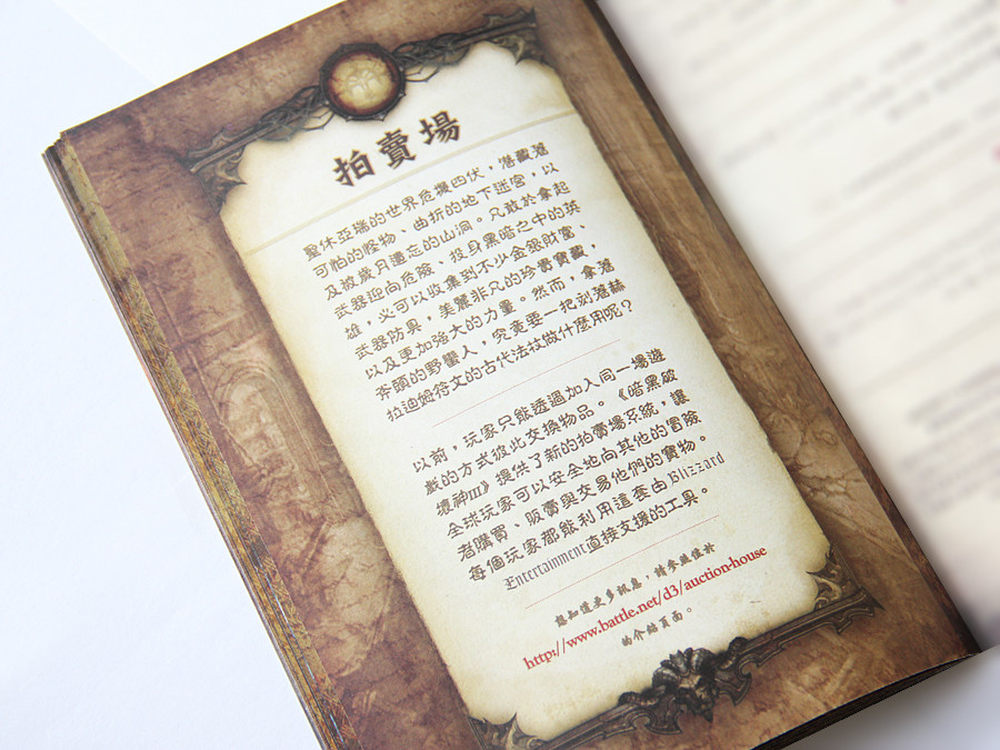 拍賣場
聖休亞瑞的世界危機四伏，潛藏著
可怕的怪物、曲折的地下迷宮，以
及被歲月遺忘的山洞。凡敢於拿起
武器迎向危險、投身黑暗之中的英
雄，必可以收集到不少金銀財富、
武器防具，美麗非凡的珍貴寶藏，
以及更加強大的力量。然而，拿著
斧頭的野蠻人，究竟要一把刻著赫
拉迪姆符文的古代法杖做什麼用呢？
以前，玩家只能透過加入同一場遊
戲的方式彼此交換物品。《暗黑破
壞神III》提供了新的拍賣場系統，讓
全球玩家可以安全地向其他的冒險
者購買、販賣與交易他們的寶物。
每個玩家都能利用這套由Blizzard
Entertainment直接支援的工具。
想知道更多訊息，請參照位於
http://www.battle.net/d3/auction-house
的介紹頁面。